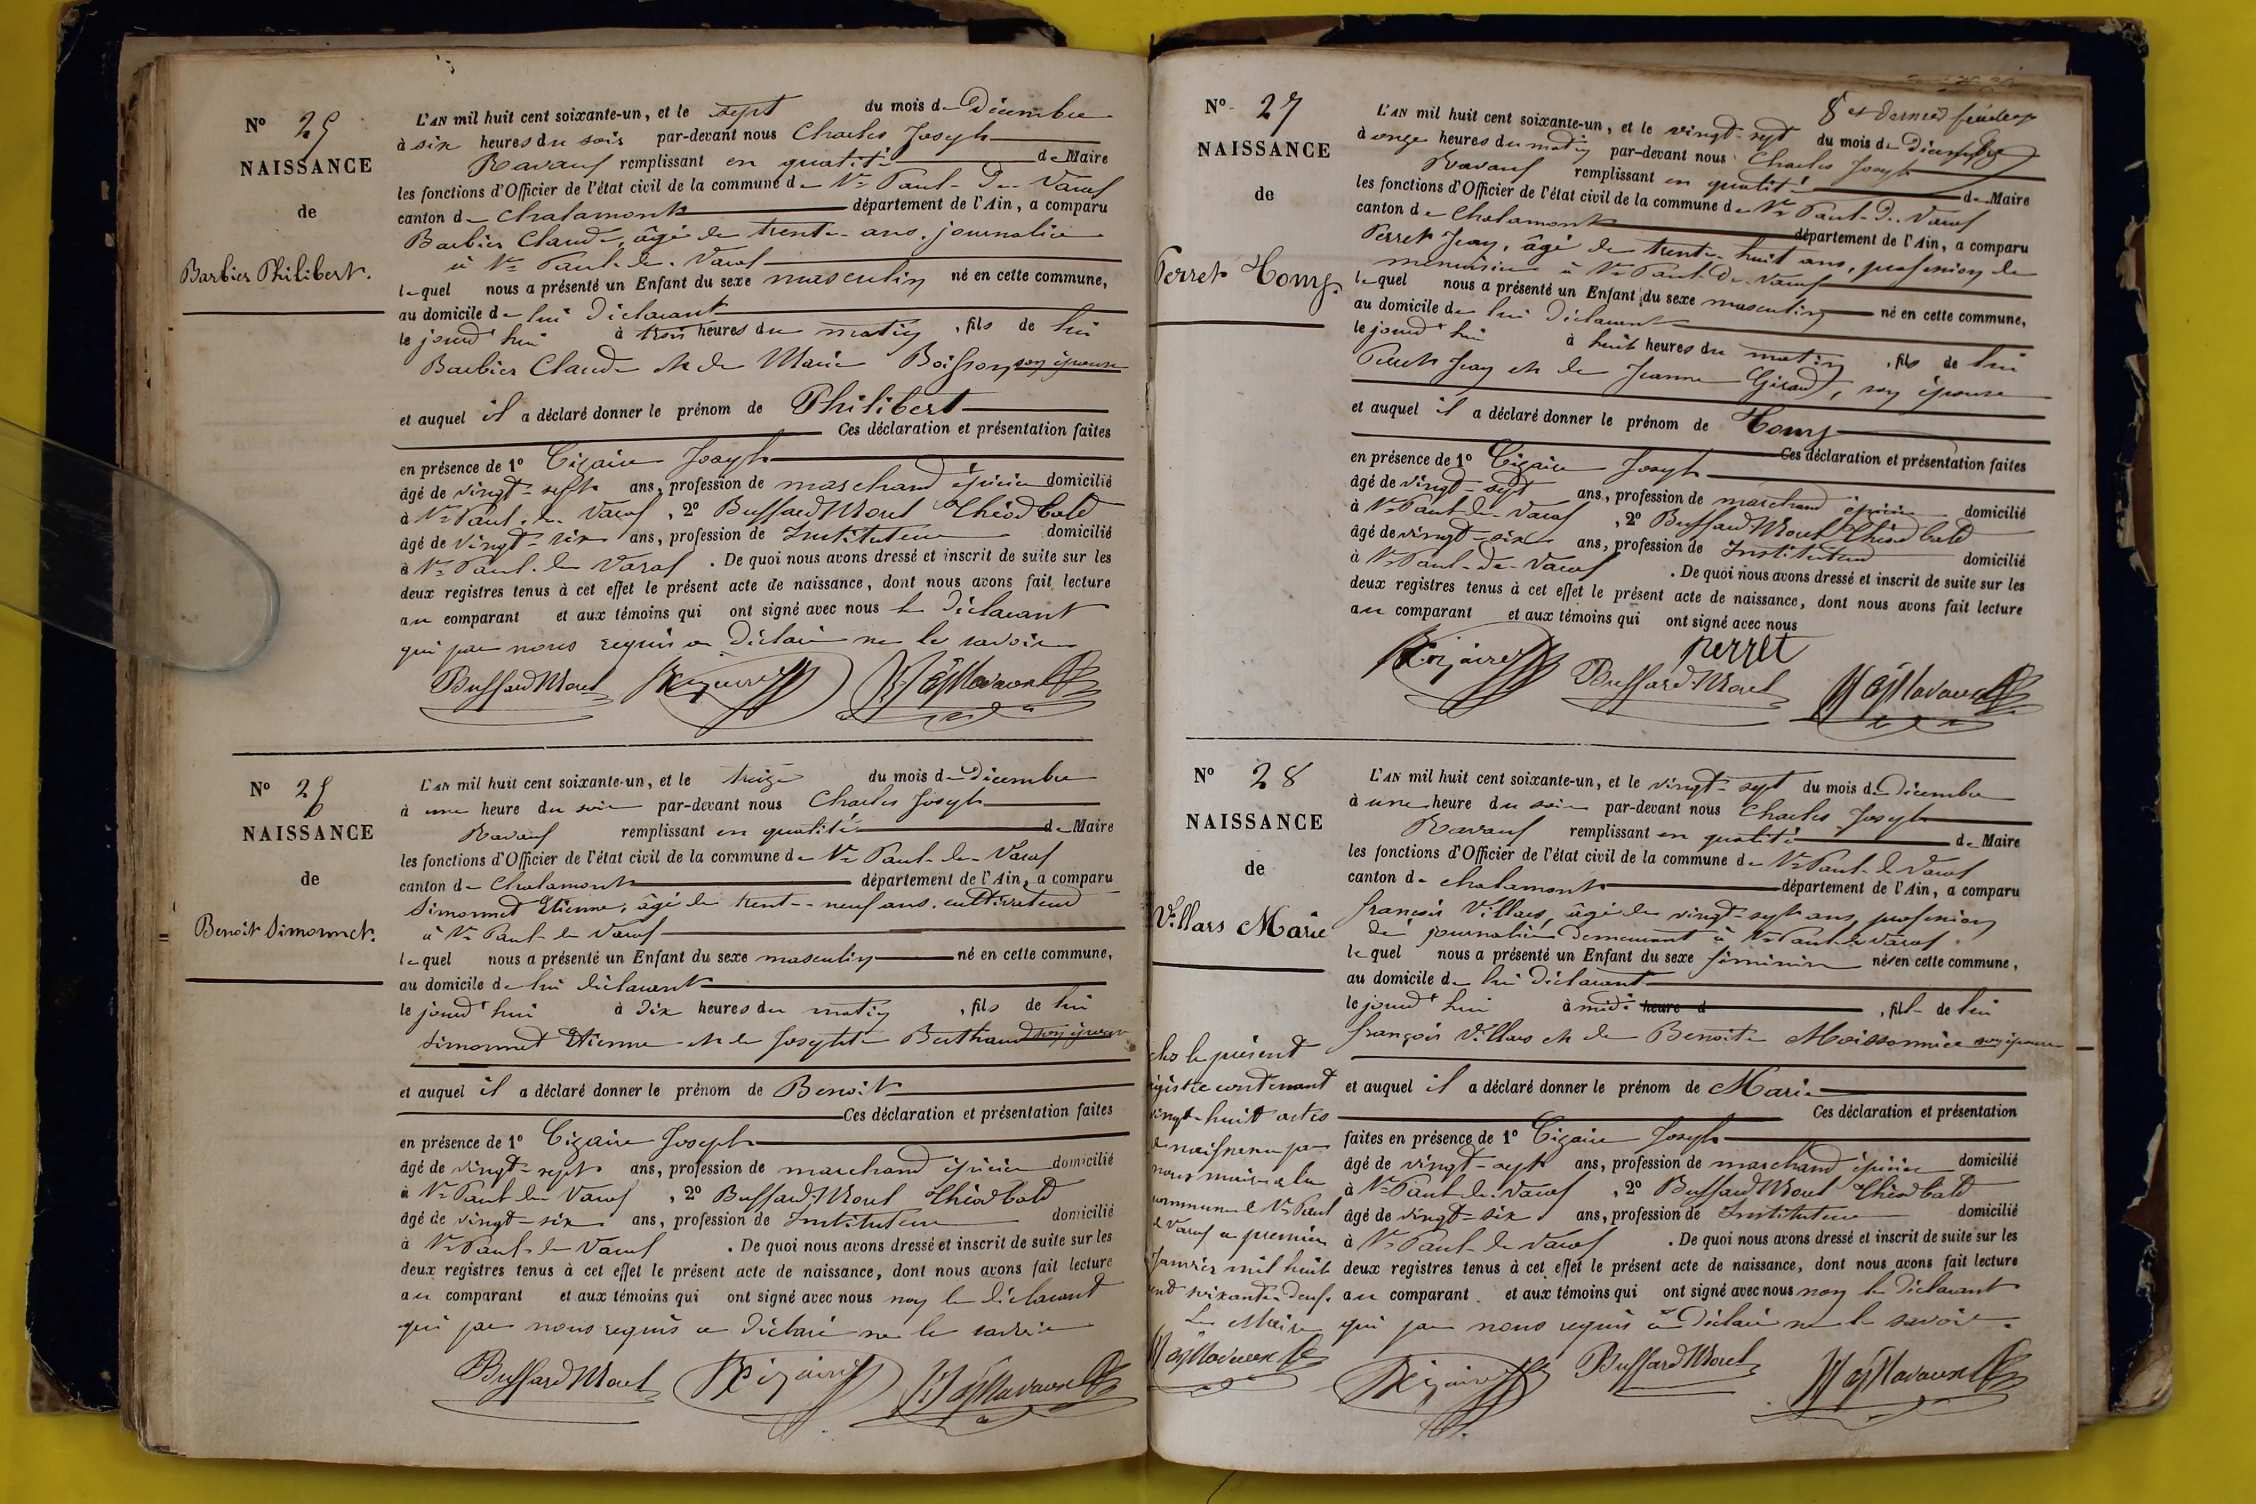 N° 25
NAISSANCE
de
Barbier Philibert.
L'AN mil huit cent soixante-un, et le sept du mois de Décembre
à six heures du soir par-devant nous Charles Joseph
Ravaux remplissant en qualité de Maire
les fonctions d'Officier de l'état civil de la commune de St Paul-de-Varax
canton de Chalamont département de l'Ain, a comparu
Barbier Claude, âgé de trente ans, journalier
à St Paul-de-Varax
lequel nous a présenté un Enfant du sexe masculin né en cette commune,
au domicile de lui Déclarant
le jourd'hui à trois heures du matin, fils de lui
Barbier Claude et de Marie Boisson son épouse
et auquel il a déclaré donner le prénom de Philibert
Ces déclaration et présentation faites
en présence de 1° Cizaire Joseph
âgé de vingt-sept ans, profession de marchand épicier domicilié
à St Paul-de-Varax, 2° Buffard Morel Théodbald
âgé de vingt-six ans, profession de Instituteur domicilié
à St Paul-de-Varax. De quoi nous avons dressé et inscrit de suite sur les
deux registres tenus à cet effet le présent acte de naissance, dont nous avons fait lecture
au comparant et aux témoins qui ont signé avec nous le Déclarant
qui par nous requis a Déclaré ne le savoir
Buffard Morel
N° 26
NAISSANCE
de
Benoît Simonnet.
L'AN mil huit cent soixante-un, et le treize du mois de Décembre
à une heure du soir par-devant nous Charles Joseph
Ravaux remplissant en qualité de Maire
les fonctions d'Officier de l'état civil de la commune de St Paul-de-Varax
canton de Chalamont département de l'Ain, a comparu
Simonnet Etienne, âgé de trente-neuf ans, cultivateur
à St Paul-de-Varax
lequel nous a présenté un Enfant du sexe masculin né en cette commune,
au domicile de lui déclarant
le jourd'hui à Dix heures du matin, fils de lui
Simonnet Etienne et de Josephte Berthaud son épouse
et auquel il a déclaré donner le prénom de Benoît
Ces déclaration et présentation faites
en présence de 1° Cizaire Joseph
âgé de vingt-sept ans, profession de marchand épicier domicilié
à St Paul-de-Varax, 2° Buffard Morel Théodbald
âgé de vingt-six ans, profession de Instituteur domicilié
à St Paul-de-Varax. De quoi nous avons dressé et inscrit de suite sur les
deux registres tenus à cet effet le présent acte de naissance, dont nous avons fait lecture
au comparant et aux témoins qui ont signé avec nous non le déclarant
qui par nous requis a Déclaré ne le savoir
Buffard Morel Cizaire
8e et dernier feuillet
N° 27
NAISSANCE
de
Perret Tony.
L'AN mil huit cent soixante-un, et le vingt-sept du mois de Décembre
à onze heures du matin par-devant nous Charles Joseph
Ravaux remplissant en qualité de Maire
les fonctions d'Officier de l'état civil de la commune de St Paul-de-Varax
canton de Chalamont département de l'Ain, a comparu
Perret Jean, âgé de trente-huit ans, profession de
menuisier à St Paul-de-Varax
lequel nous a présenté un Enfant du sexe masculin né en cette commune,
au domicile de lui Déclarant
le jourd'hui à huit heures du matin, fils de lui
Perret Jean et de Jeanne Giraud, son épouse
et auquel il a déclaré donner le prénom de Tony
Ces déclaration et présentation faites
en présence de 1° Cizaire Joseph
âgé de vingt-sept ans, profession de marchand épicier domicilié
à St Paul-de-Varax, 2° Buffard Morel Théodbald
âgé de vingt-six ans, profession de Instituteur domicilié
à St Paul-de-Varax. De quoi nous avons dressé et inscrit de suite sur les
deux registres tenus à cet effet le présent acte de naissance, dont nous avons fait lecture
au comparant et aux témoins qui ont signé avec nous
Cizaire perret
Buffard Morel
N° 28
NAISSANCE
de
Villars Marie
L'AN mil huit cent soixante-un, et le vingt-sept du mois de Décembre
à une heure du soir par-devant nous Charles Joseph
Ravaux remplissant en qualité de Maire
les fonctions d'Officier de l'état civil de la commune de St Paul-de-Varax
canton de Chalamont département de l'Ain, a comparu
françois Villars, âgé de vingt-sept ans, profession
de journalier demeurant à St Paul de Varax
lequel nous a présenté un Enfant du sexe féminin née en cette commune,
au domicile de lui déclarant
le jourd'hui à midi heure d, fille de lui
françois Villars et de Benoite Moissonnier son épouse
et auquel il a déclaré donner le prénom de Marie
Ces déclaration et présentation
faites en présence de 1° Cizaire Joseph
âgé de vingt-sept ans, profession de marchand épicier domicilié
à St Paul-de-Varax, 2° Buffard Morel Théodbald
âgé de vingt-six ans, profession de Instituteur domicilié
à St Paul-de-Varax. De quoi nous avons dressé et inscrit de suite sur les
deux registres tenus à cet effet le présent acte de naissance, dont nous avons fait lecture
au comparant et aux témoins qui ont signé avec nous non le déclarant
qui par nous requis a Déclaré ne le savoir.
Cizaire Buffard Morel
clos le présent
registre contenant
vingt-huit actes
de naissance par
nous maire de la
commune de St Paul
de Varax ce premier
Janvier mil huit
cent soixante-deux.
Le Maire